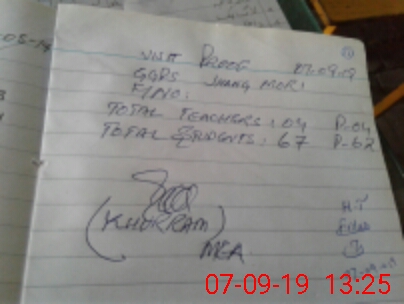 VISIT PROOF 07-09-19
GGPS JHANG MORI
F/NO:
TOTAL TEACHERS: 04 P-04
TOTAL STUDENTS: 67 P-62
(KHURRAM)
MEA
H.T
07-09-19 13:25